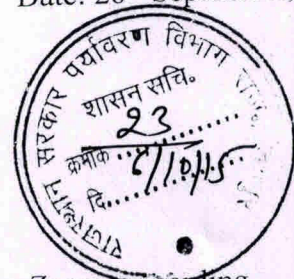 Date:
राजस्थान सरकार पर्यावरण विभाग
शासन सचि०
23
क्रमांक ..........
दि..... 6/10/15